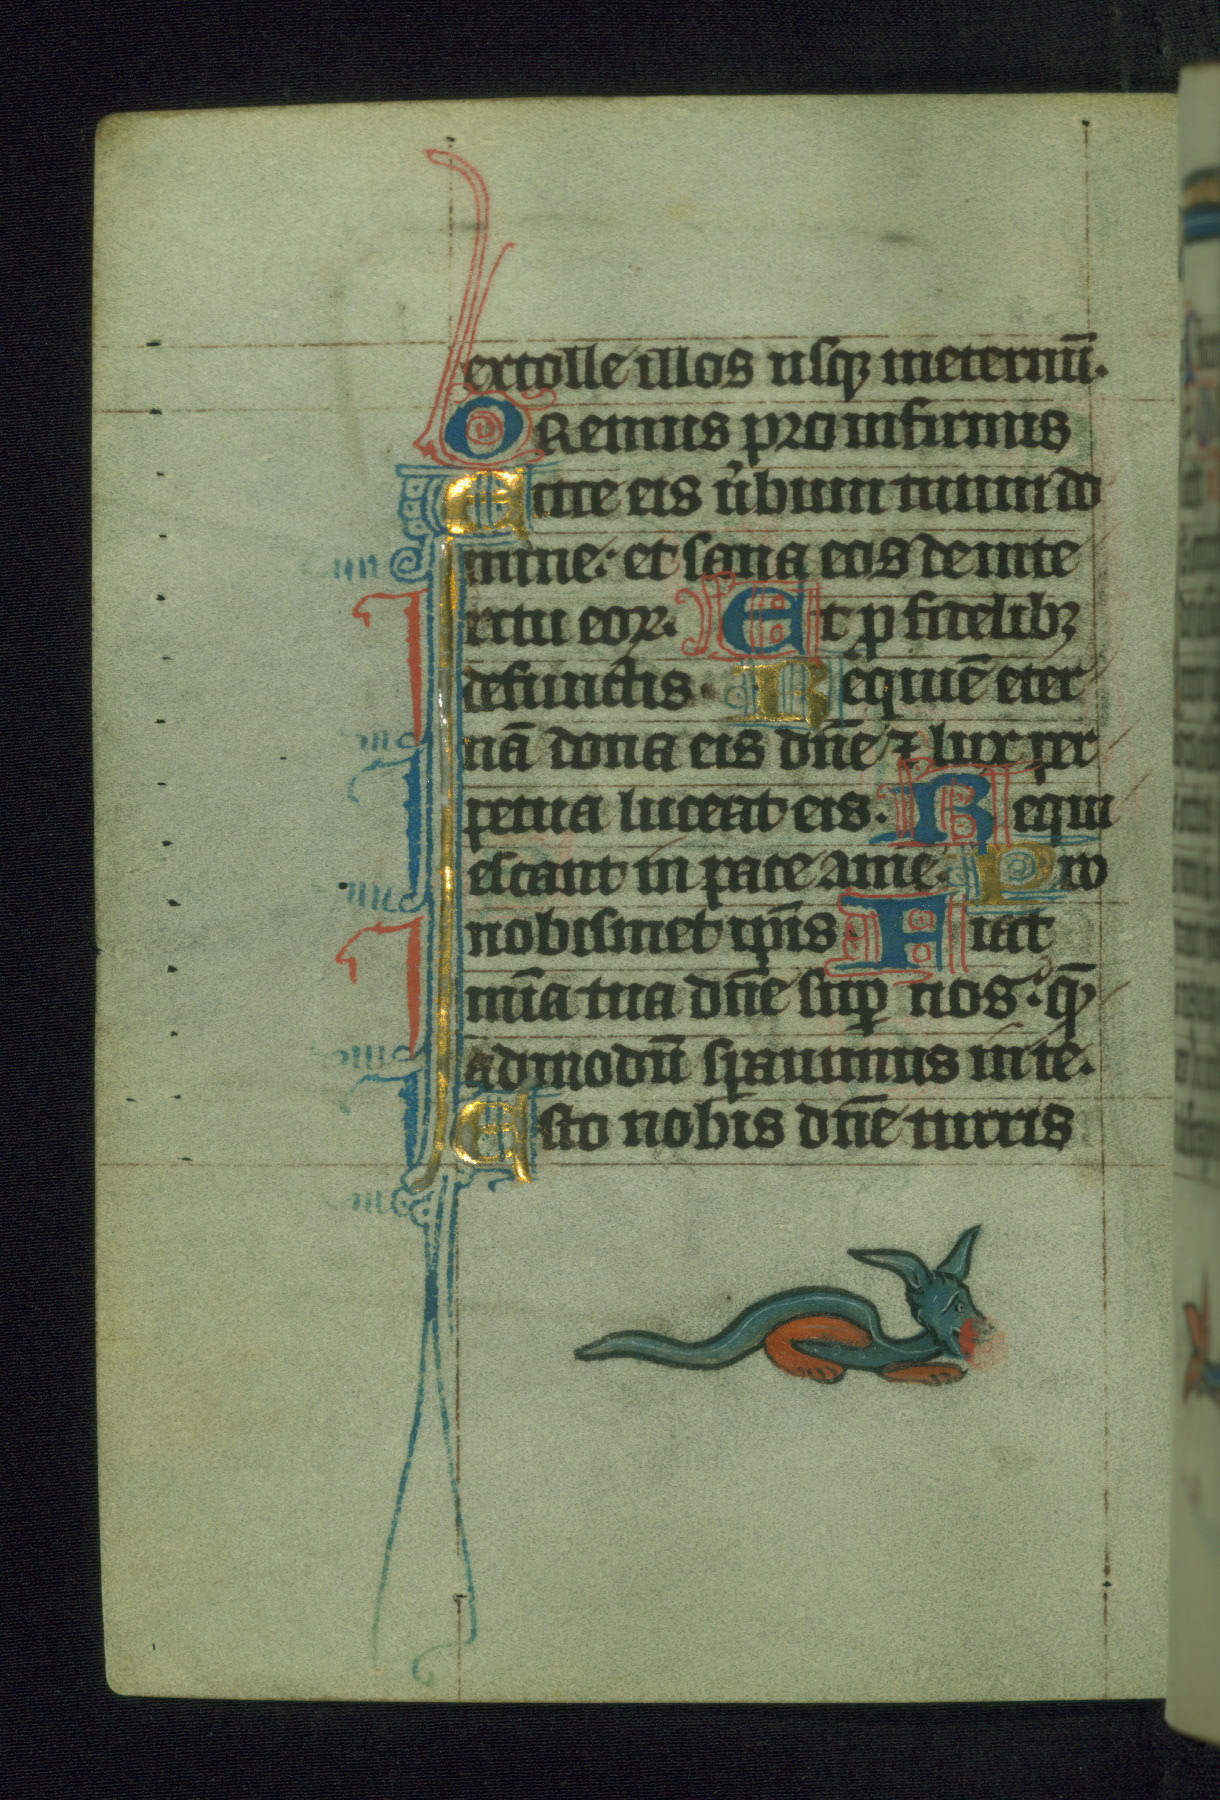 extolle illos usq; ineternū.
ORemus pro infirmis
Mitte eis ủbum tuum do
mine: et sana eos de inte
ritu eoꝝ. Et ꝓ fidelibꝫ
defunctis. Requiē eter
nā dona eis dn̄e ⁊ lux per
petua luceat eis. Requi
escant in pace amē. Pro
nobismet ip̄is Fiat
mīa tua dn̄e sup̄ nos: q̄m
admodū sperauimus in te.
Esto nobis dn̄e turris